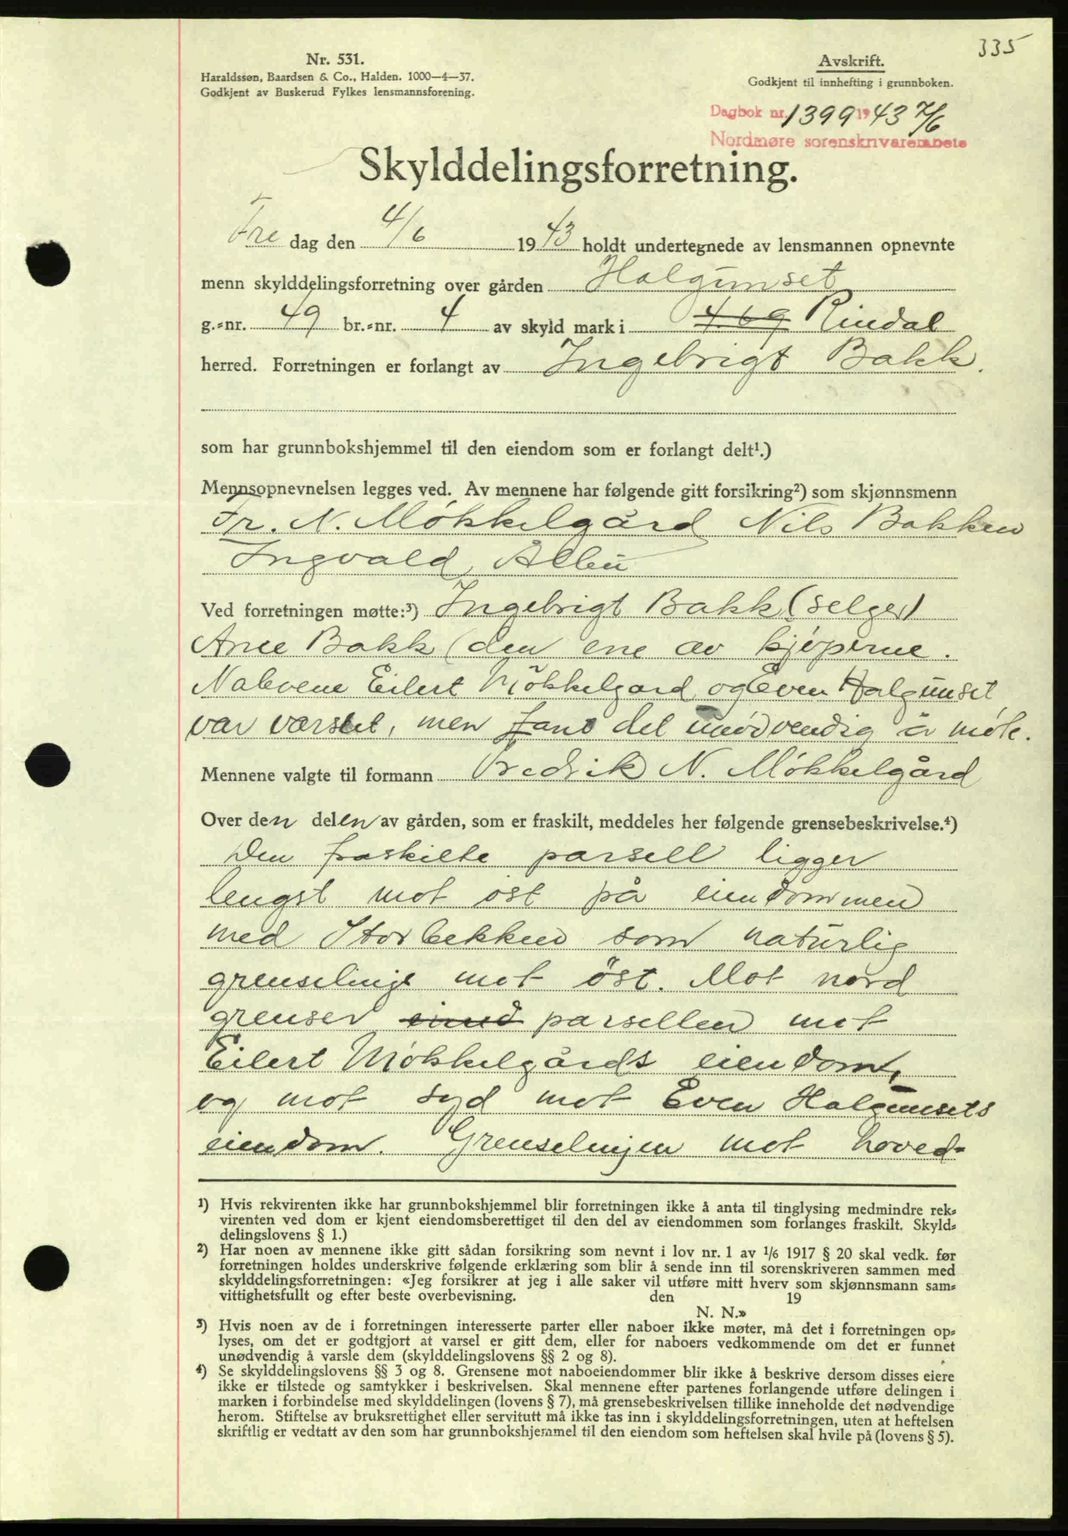 335
Nr. 531.
Haraldssøn, Baardsen & Co., Halden. 1000—4—37.
Godkjent av Buskerud Fylkes lensmannsforening.
Avskrift.
Godkjent til innhefting i grunnboken.
Dagbok nr. 1399 1943 7/6
Nordmøre sorenskrivarembete
Skylddelingsforretning.
Fre dag den 4/6 1943 holdt undertegnede av lensmannen opnevnte
menn skylddelingsforretning over gården Halgunset
g.=nr. 49 br.=nr. 4 av skyld mark i 4.69 Rindal
herred. Forretningen er forlangt av Ingebrigt Bakk.
som har grunnbokshjemmel til den eiendom som er forlangt delt¹.)
Mennsopnevnelsen legges ved. Av mennene har følgende gitt forsikring²) som skjønnsmenn
Fr. N. Møkkelgård Nils Bakken
Ingvald
Ved forretningen møtte:³) Ingebrigt Bakk (selger)
Arne Bakk (den ene av kjøperne.
Naboene Eilert Møkkelgard og Even Halgunset
var varslet, men fant det unødvendig å møte.
Mennene valgte til formann Fredrik N. Møkkelgård
Over den delen av gården, som er fraskilt, meddeles her følgende grensebeskrivelse.⁴)
Den fraskilte parsell ligger
lengst mot øst på eiendommen
med Storbekken som naturlig
grenselinje mot öst. Mot nord
grenser parsellen mot
Eilert Møkkelgårds eiendom,
og mot syd mot Even Halgunsets
eiendom. Grenselinjen mot hoved=
¹) Hvis rekvirenten ikke har grunnbokshjemmel blir forretningen ikke å anta til tinglysing medmindre rek=
virenten ved dom er kjent eiendomsberettiget til den del av eiendommen som forlanges fraskilt. Skyld=
delingslovens § 1.)
²) Har noen av mennene ikke gitt sådan forsikring som nevnt i lov nr. 1 av 1/6 1917 § 20 skal vedk. før
forretningen holdes underskrive følgende erklæring som blir å sende inn til sorenskriveren sammen med
skylddelingsforretningen: «Jeg forsikrer at jeg i alle saker vil utføre mitt hverv som skjønnsmann sam=
vittighetsfullt og efter beste overbevisning. den 19
N. N.»
³) Hvis noen av de i forretningen interesserte parter eller naboer ikke møter, må det i forretningen op=
lyses, om det er godtgjort at varsel er gitt dem, eller for naboers vedkommende om det er funnet
unødvendig å varsle dem (skylddelingslovens §§ 2 og 8).
⁴) Se skylddelingslovens §§ 3 og 8. Grensene mot naboeiendommer blir ikke å beskrive dersom disses eiere
ikke er tilstede og samtykker i beskrivelsen. Skal mennene efter partenes forlangende utføre delingen i
marken i forbindelse med skylddelingen (lovens § 7), må grensebeskrivelsen tillike inneholde det nødvendige
herom. Stiftelse av bruksrettighet eller servitutt må ikke tas inn i skylddelingsforretningen, uten at heftelsen
skriftlig er vedtatt av den som har grunnbokshjemmel til den eiendom som heftelsen skal hvile på (lovens § 5).